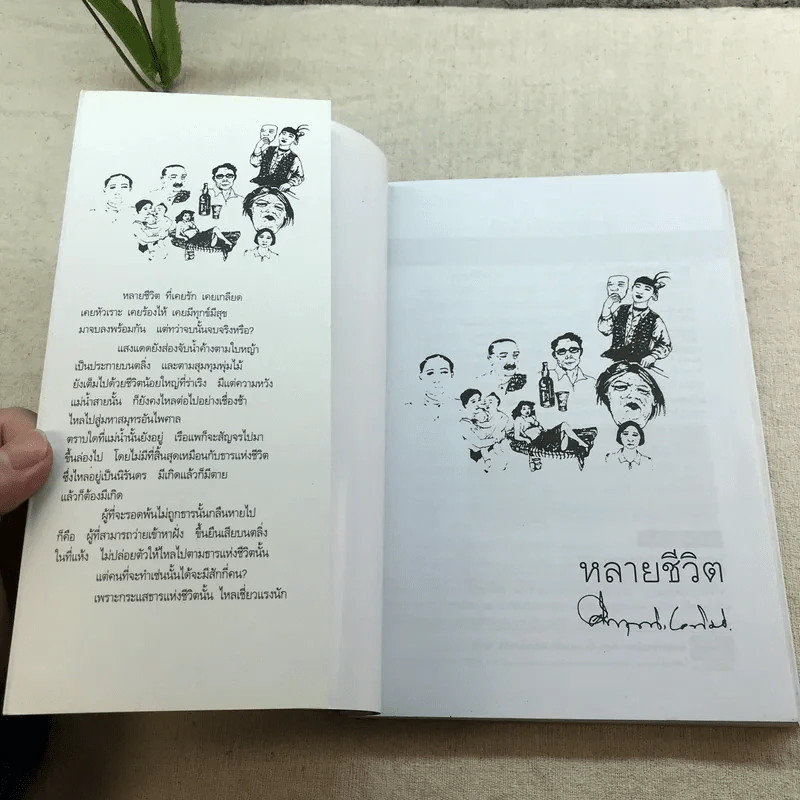 หลายชีวิต ที่เคยรัก เคยเกลียด
เคยหัวเราะ เคยร้องไห้ เคยมีทุกข์มีสุข
มาจบลงพร้อมกัน แต่ทว่าจบนั้นจบจริงหรือ?
แสงแดดยังส่องจับน้ำค้างตามใบหญ้า
เป็นประกายบนตลิ่ง และตามสุมทุมพุ่มไม้
ยังเต็มไปด้วยชีวิตน้อยใหญ่ที่ร่าเริง มีแต่ความหวัง
แม่น้ำสายนั้น ก็ยังคงไหลต่อไปอย่างเชื่องช้า
ไหลไปสู่มหาสมุทรอันไพศาล
ตราบใดที่แม่น้ำนั้นยังอยู่ เรือแพก็จะสัญจรไปมา
ขึ้นล่องไป โดยไม่มีที่สิ้นสุดเหมือนกับธารแห่งชีวิต
ซึ่งไหลอยู่เป็นนิรันดร มีเกิดแล้วก็มีตาย
แล้วก็ต้องมีเกิด
ผู้ที่จะรอดพ้นไม่ถูกธารนั้นกลืนหายไป
ก็คือ ผู้ที่สามารถว่ายเข้าหาฝั่ง ขึ้นยืนเสียบนตลิ่ง
ในที่แห้ง ไม่ปล่อยตัวให้ไหลไปตามธารแห่งชีวิตนั้น
แต่คนที่จะทำเช่นนั้นได้จะมีสักกี่คน?
เพราะกระแสธารแห่งชีวิตนั้น ไหลเชี่ยวแรงนัก
หลายชีวิต